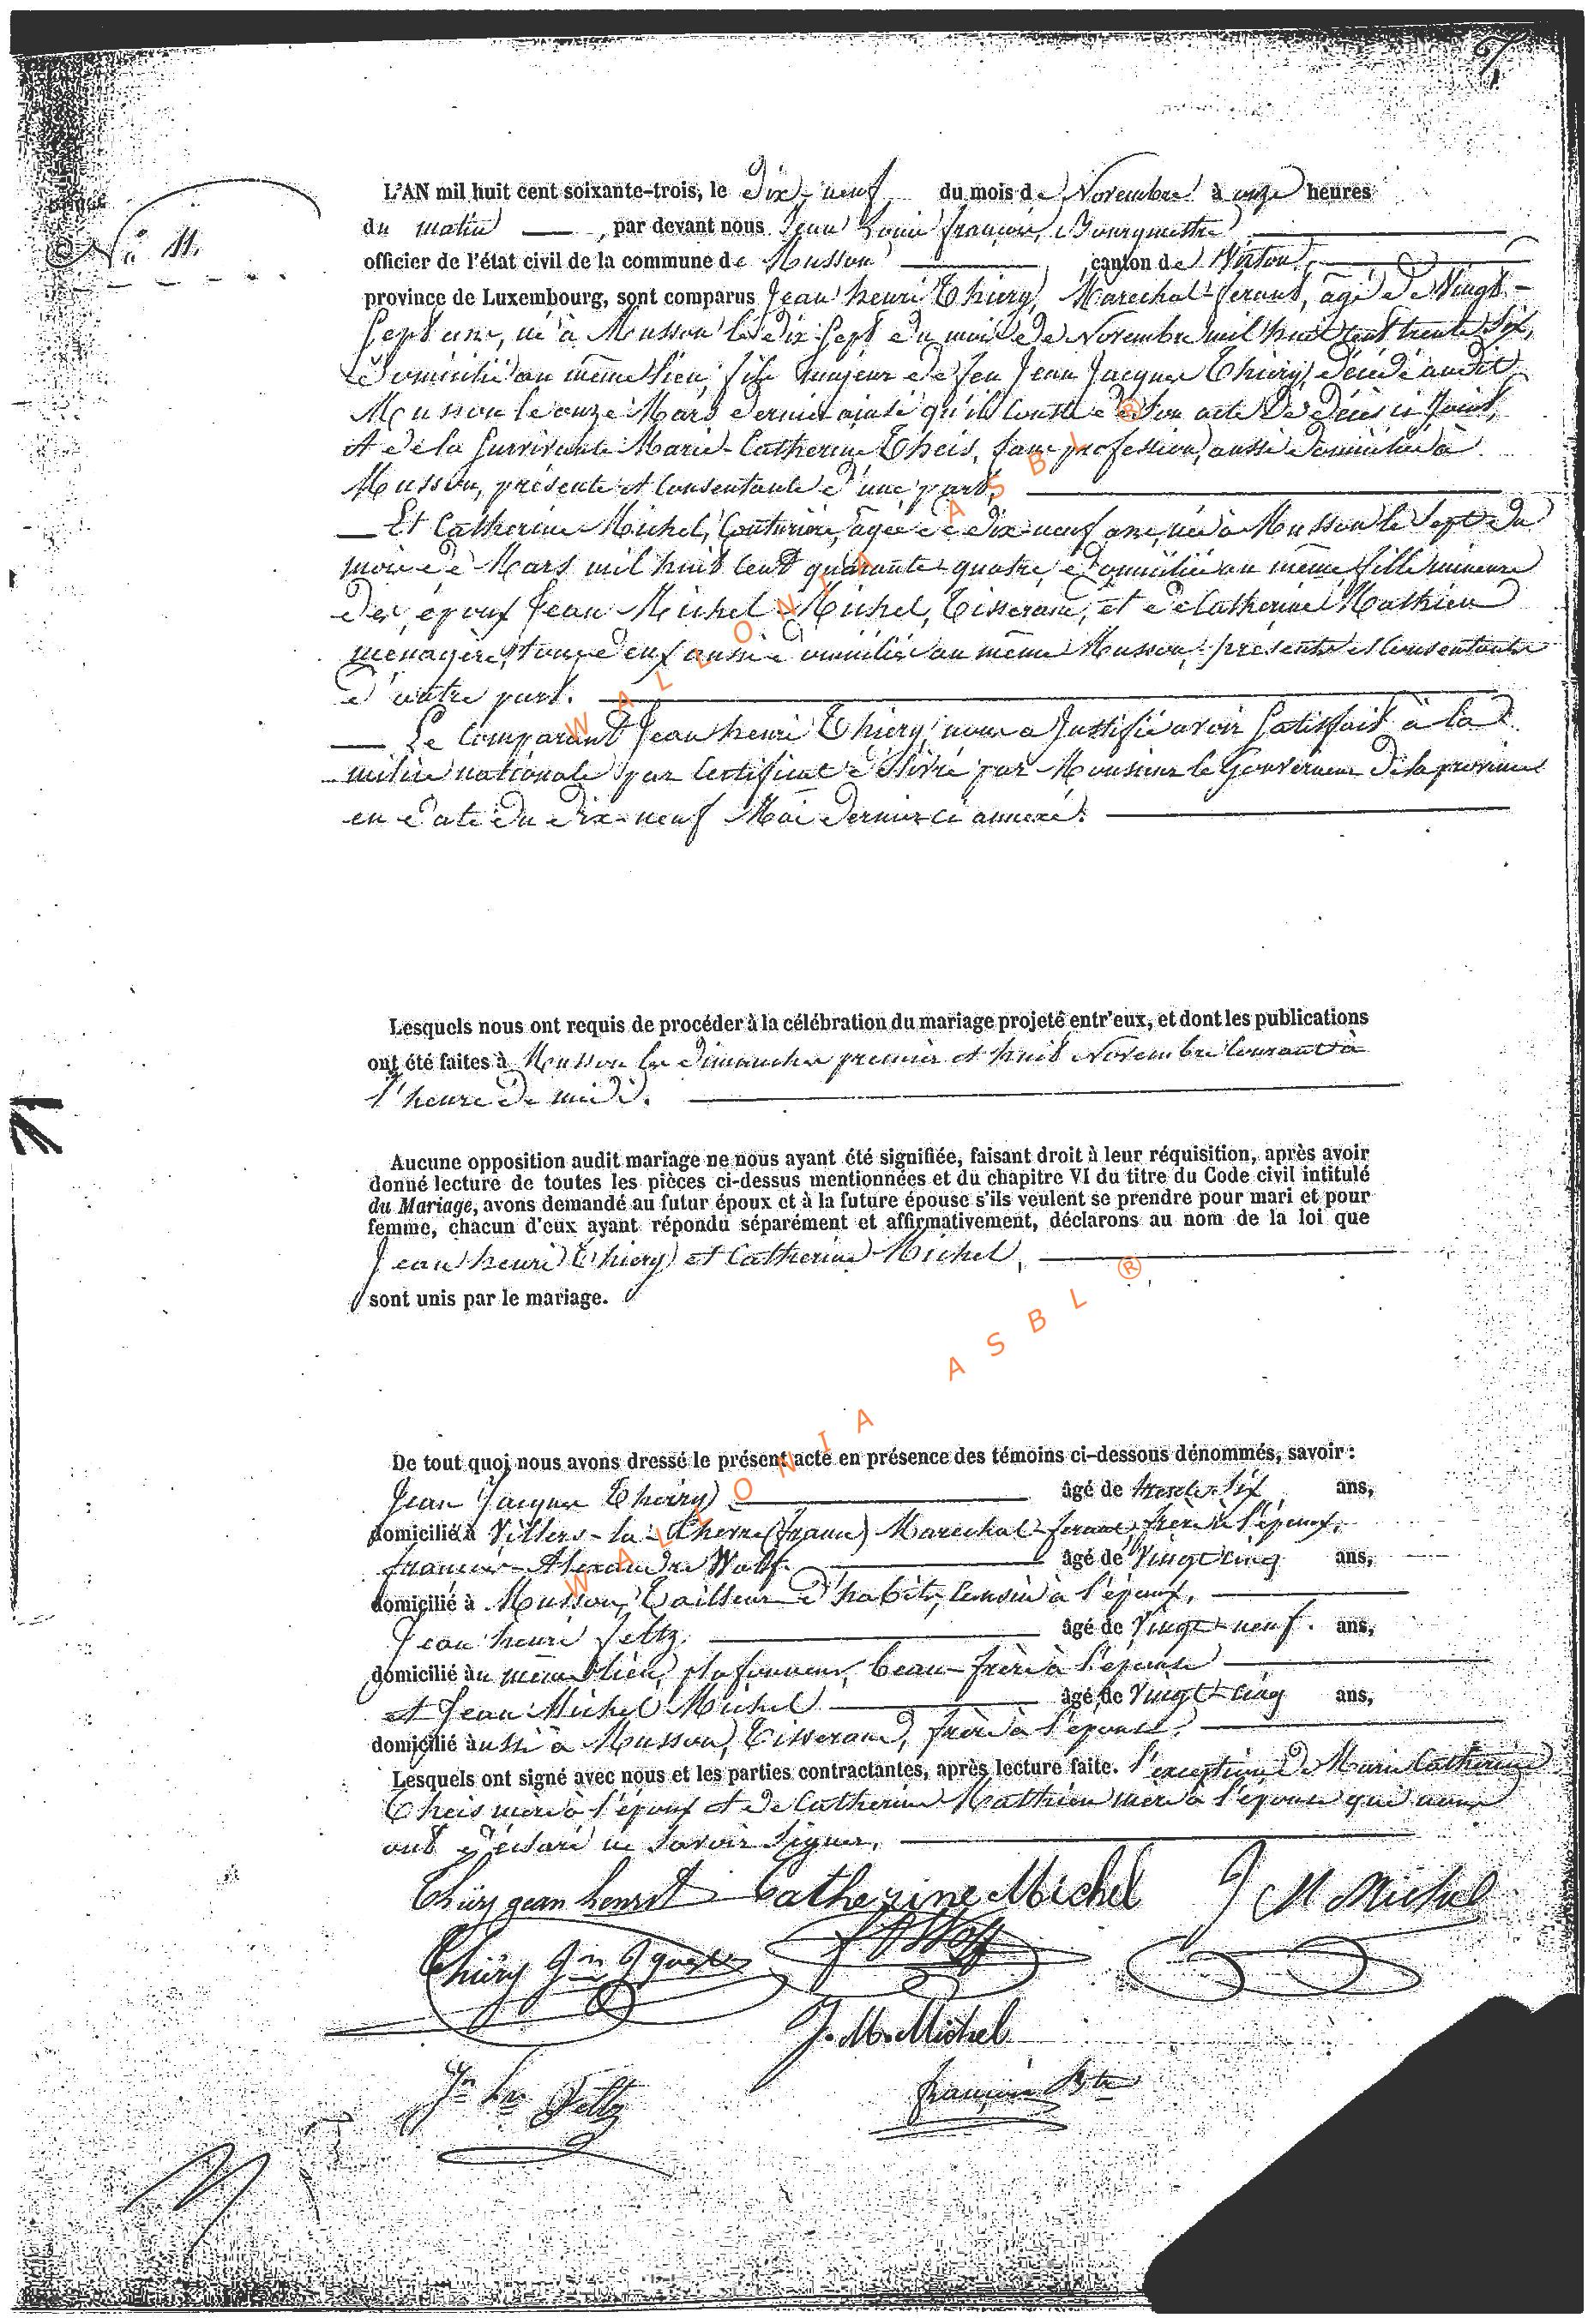 L'AN mil huit cent soixante-trois, le dix-neuf du mois de Novembre à onze heures
du matin, par devant nous Jean Louis françois, Bourgmestre,
N° 11.
officier de l'état civil de la commune de Musson, canton de Virton,
province de Luxembourg, sont comparus Jean henri Thiery, Marechal-ferant, âgé de Vingt-
Sept ans, né à Musson le dix Sept du mois de Novembre mil huit cent trente Six,
domicilié au même lieu, fils majeur de feu Jean Jacques Thiery, décédé audit
Musson le onze Mars dernier ainsi qu'il Conste de son acte de décès ci Joint,
et de la Survivante Marie-Catherine Theis, sans profession, aussi domiciliée à
Musson, présente et Consentante d'une part,
Et Catherine Michel, Couturière, âgée de dix-neuf ans, née à Musson le Sept du
mois de Mars mil huit Cent quarante-quatre, domiciliée au même, fille mineure
des époux Jean Michel Michel, Tisserand, et de Catherine Mathieu
menagère, tous deux aussi domiciliés au même Musson, présents et Consentants
d'autre part.
Le Comparant Jean henri Thiery, nous a Justifié avoir Satisfait à la
milice nationale par Certificat délivré par Monsieur le Gouverneur de la province
en date du dix-neuf Mai dernier ci annexé.
Lesquels nous ont requis de procéder à la célébration du mariage projeté entr'eux, et dont les publications
ont été faites à Musson les dimanches premier et huit Novembre Courant à
l'heure de midi.
Aucune opposition audit mariage ne nous ayant été signifiée, faisant droit à leur réquisition, après avoir
donné lecture de toutes les pièces ci-dessus mentionnées et du chapitre VI du titre du Code civil intitulé
du Mariage, avons demandé au futur époux et à la future épouse s'ils veulent se prendre pour mari et pour
femme, chacun d'eux ayant répondu séparément et affirmativement, déclarons au nom de la loi que
Jean henri Thiery et Catherine Michel,
sont unis par le mariage.
De tout quoi nous avons dressé le présent acte en présence des témoins ci-dessous dénommés, savoir :
Jean Jacques Thiery âgé de trente-Six ans,
domicilié à Villers-la-Chèvre (france) Marechal-ferant, frère à l'époux,
françois-Alexandre Wolff âgé de Vingt Cinq ans,
domicilié à Musson, Tailleur d'habits, Cousin à l'époux,
Jean henri Feltz âgé de Vingt-neuf. ans,
domicilié au même lieu, plafonneur, beau-frère à l'épouse
et Jean Michel Michel âgé de Vingt-Cinq ans,
domicilié aussi à Musson, Tisserand, frère à l'épouse.
Lesquels ont signé avec nous et les parties contractantes, après lecture faite. l'exception de Marie Catherine
Theis mère à l'époux et de Catherine Mathieu mère à l'épouse qui nous
ont déclaré ne Savoir Signer,
Thiry jean henri Catherine Michel J M Michel
Thiiry Jn Jques FAWolff
J. M. Michel
Jn hri Feltz françois Btre
WALLONIA ASBL ®
WALLONIA ASBL ®